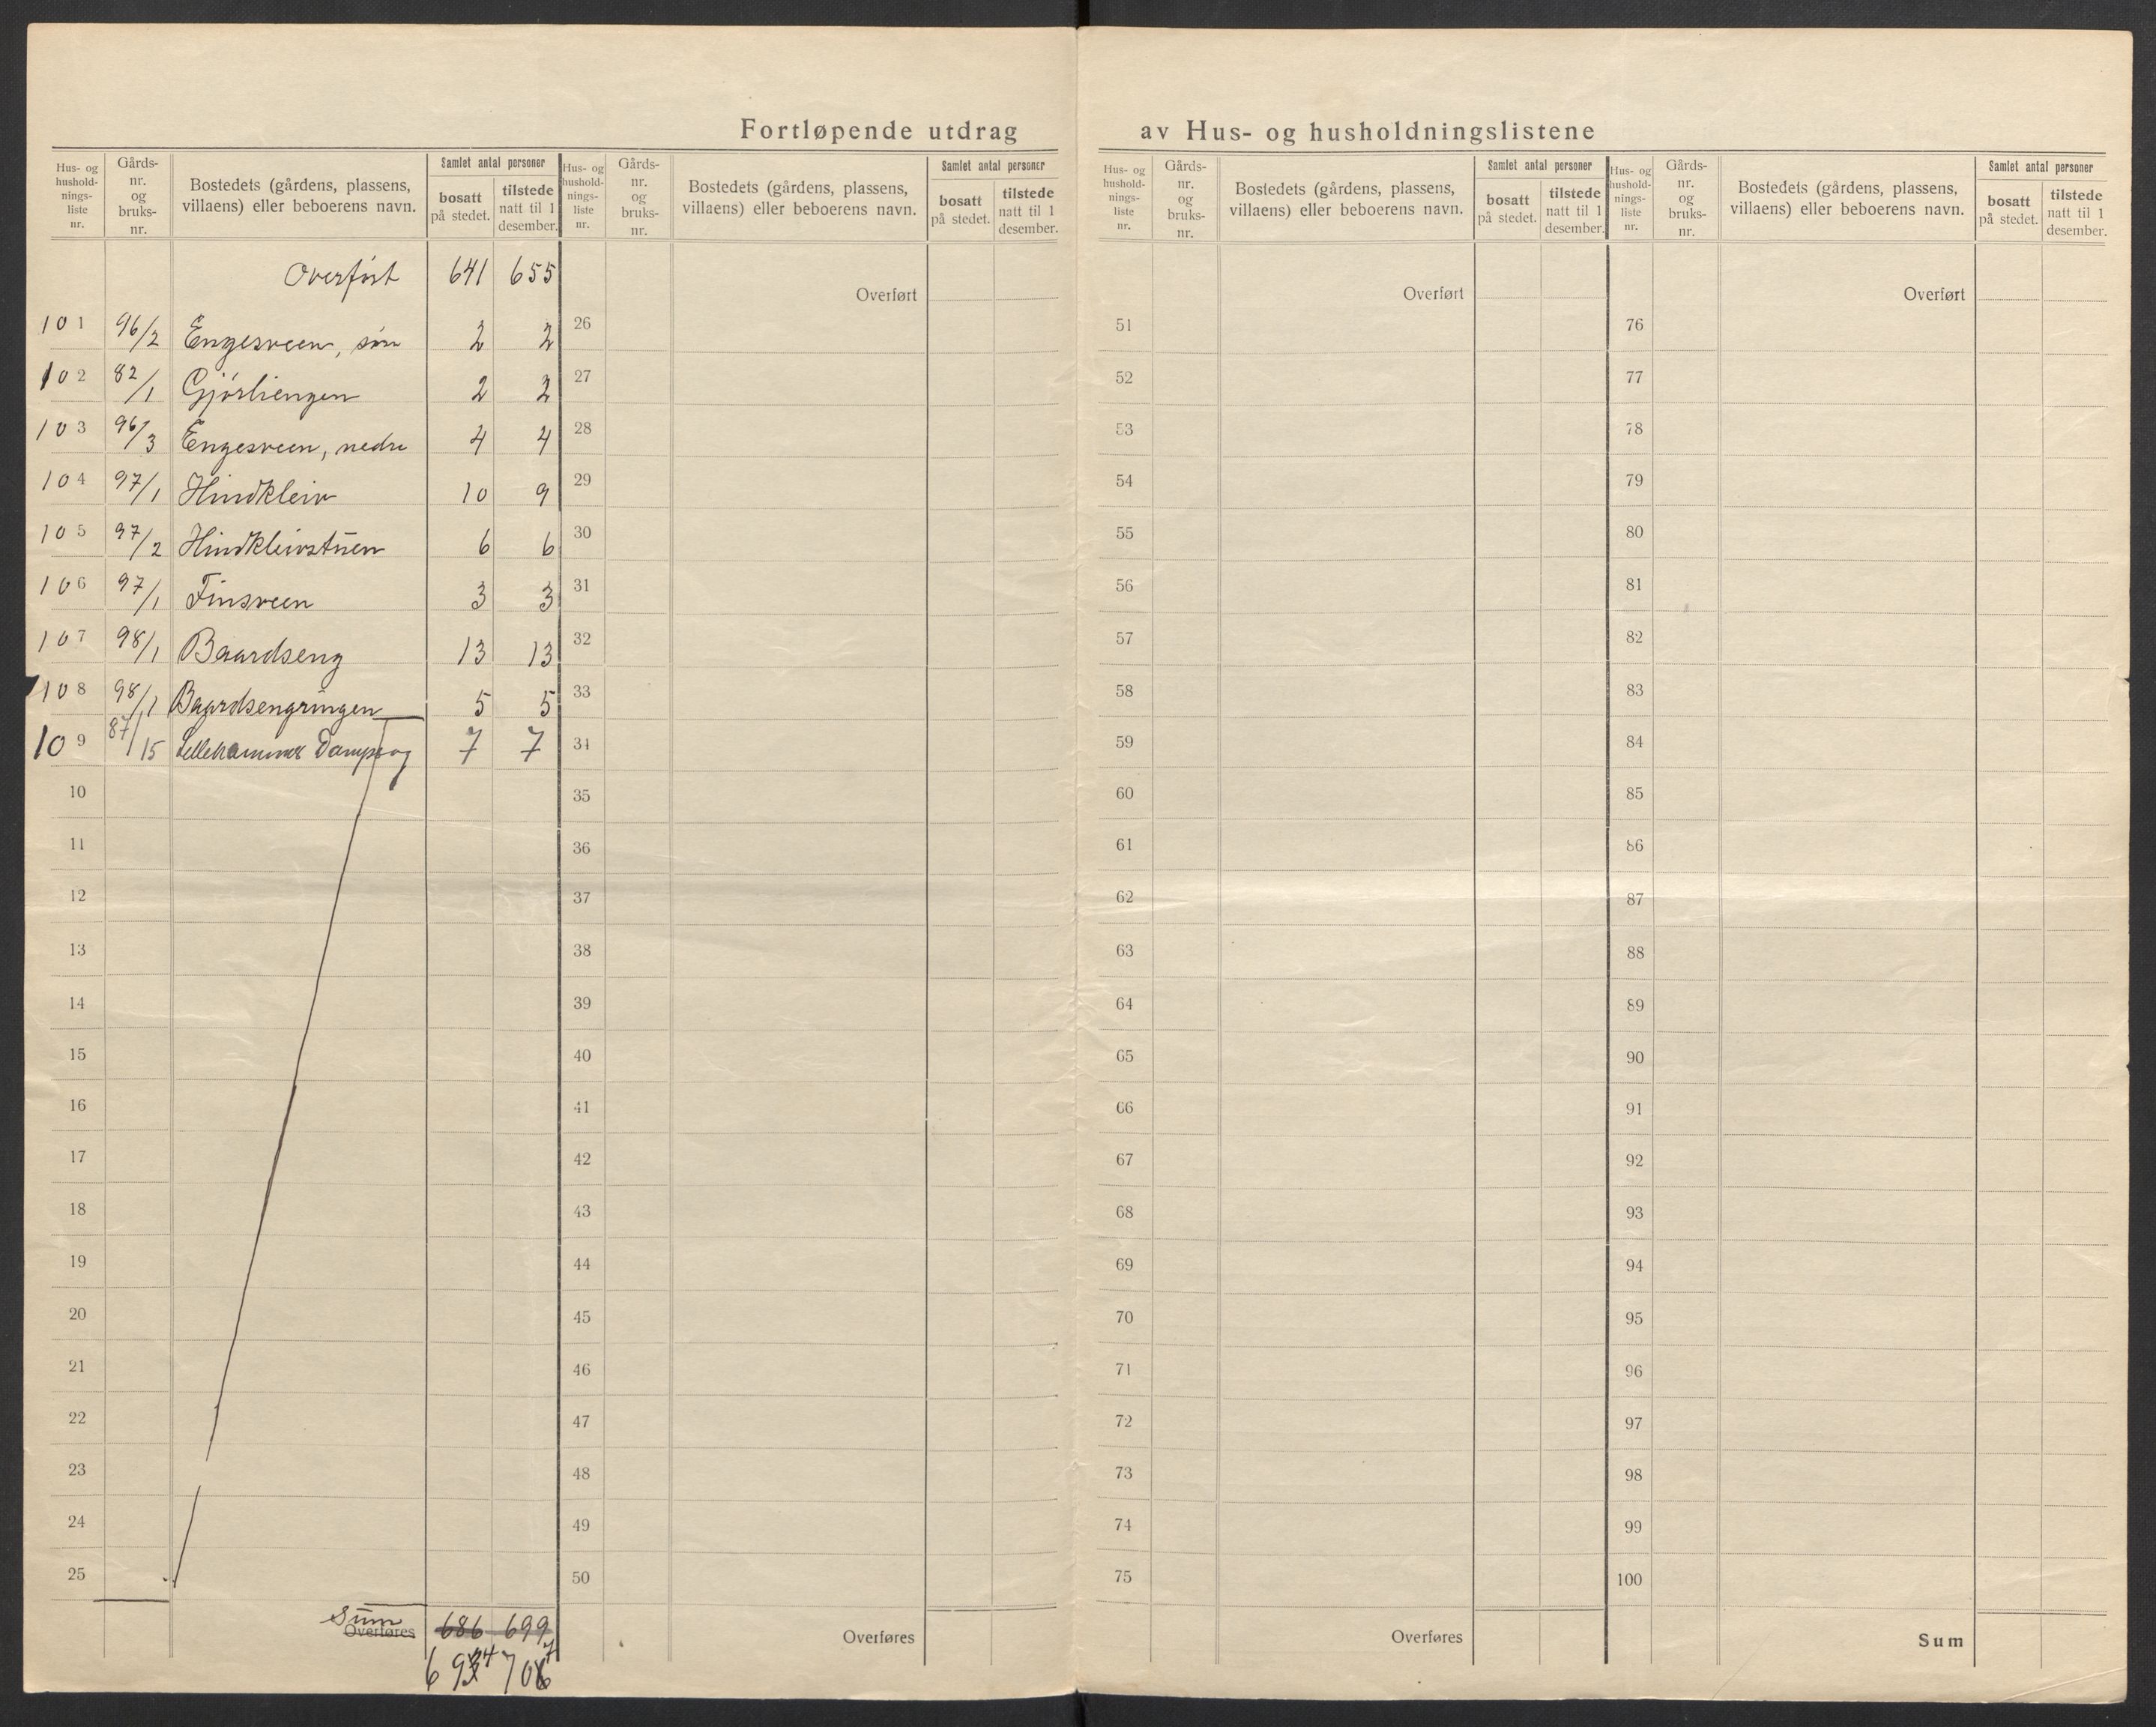 Fortløpende utdrag av Hus- og husholdningslistene
Hus- og hushold- nings- liste nr. | Gårds- nr. og bruks- nr. | Bostedets (gårdens, plassens, villaens) eller beboerens navn. | Samlet antal personer | bosatt på stedet. | tilstede natt til 1 desember.
Overført 641 655
101 96/2 Engesveen, søn 2 2
102 82/1 Gjørliengen 2 2
103 96/3 Engesveen, nedre 4 4
104 97/1 Hindkleiv 10 9
105 97/2 Hindkleivstuen 6 6
106 97/1 Finsveen 3 3
107 98/1 Baardseng 13 13
108 98/1 Baardsengringen 5 5
109 87/15 Lillehammer Dampsag 7 7
10
11
12
13
14
15
16
17
18
19
20
21
22
23
24
25
Sum
Overføres 686 699
Hus- og hushold- nings- liste nr. | Gårds- nr. og bruks- nr. | Bostedets (gårdens, plassens, villaens) eller beboerens navn. | Samlet antal personer | bosatt på stedet. | tilstede natt til 1 desember.
Overført
26
27
28
29
30
31
32
33
34
35
36
37
38
39
40
41
42
43
44
45
46
47
48
49
50
Overføres
Hus- og hushold- nings- liste nr. | Gårds- nr. og bruks- nr. | Bostedets (gårdens, plassens, villaens) eller beboerens navn. | Samlet antal personer | bosatt på stedet. | tilstede natt til 1 desember.
Overført
51
52
53
54
55
56
57
58
59
60
61
62
63
64
65
66
67
68
69
70
71
72
73
74
75
Overføres
Hus- og hushold- nings- liste nr. | Gårds- nr. og bruks- nr. | Bostedets (gårdens, plassens, villaens) eller beboerens navn. | Samlet antal personer | bosatt på stedet. | tilstede natt til 1 desember.
Overført
76
77
78
79
80
81
82
83
84
85
86
87
88
89
90
91
92
93
94
95
96
97
98
99
100
Sum